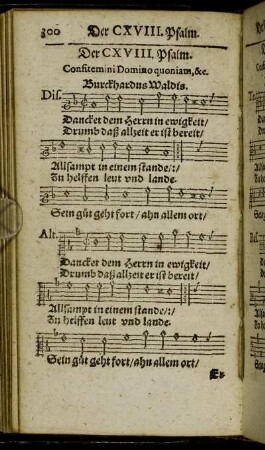 300 Der CXVIII. Psalm.
Der CXVIII. Psalm.
Confitemini Domino quoniam, &c.
Burckhardus Waldis.
Dis.
Dancket dem Herrn in ewigkeit/
Drumb daß allzeit er ist bereit/
Allsampt in einem stande/:/
Zu helffen leut vnd lande.
Sein güt geht fort/ ahn allem ort/
Alt.
Dancket dem Herrn in ewigkeit/
Drumb daß allzeit er ist bereit/
Allsampt in einem stande/:/
Zu helffen leut vnd lande.
Sein güt geht fort/ ahn allem ort/
Er